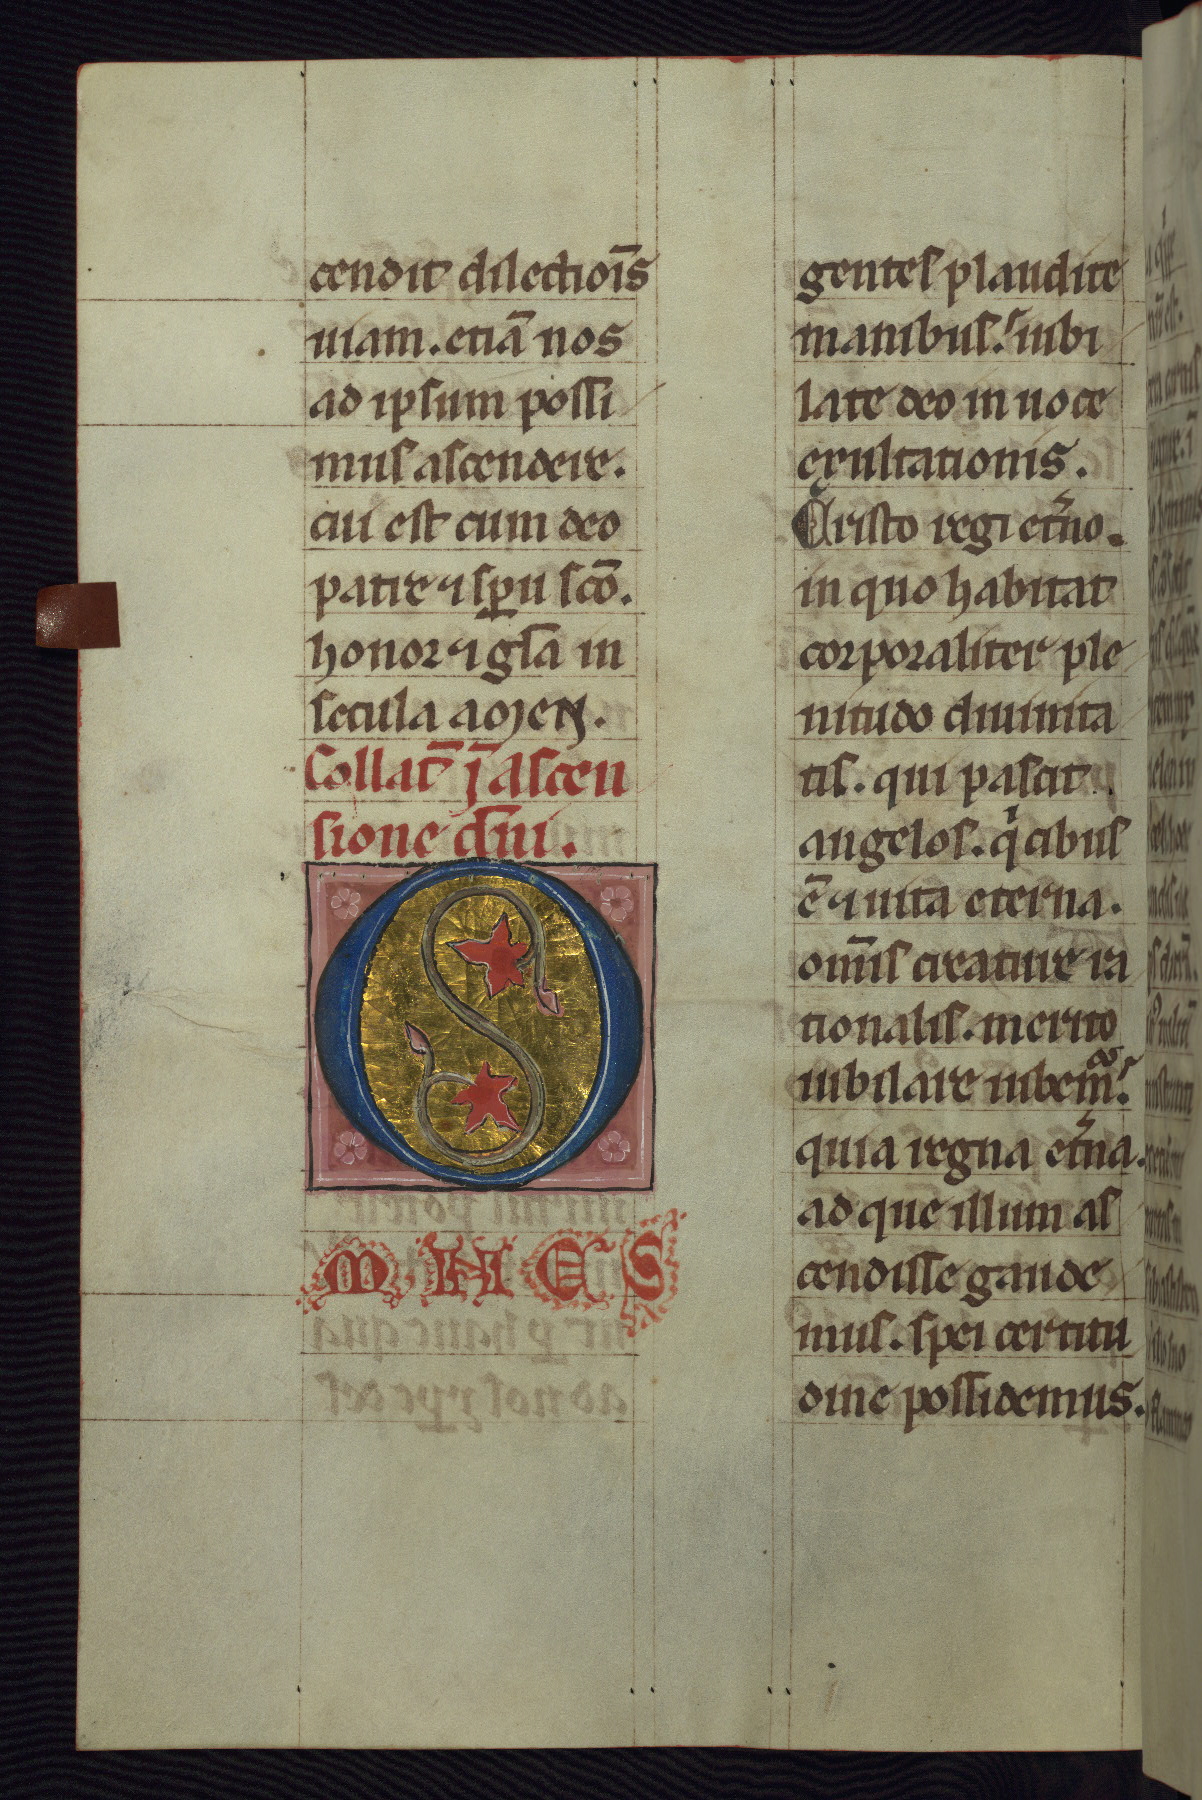 cendit dilectiōis
uiam. etiā nos
ad ipsum possi
mus ascendere.
cui est cum deo
patre ⁊ sp̄u scō.
honor ⁊ gl̄a in
secula amen.
Collat̄ ī ascen
sione dn̄i.
O
MNES
gentes plaudite
manibus. iubi
late deo in uoce
exultationis.
Cristo regi et̄no.
in quo habitat
corporaliter ple
nitudo diuinita
tis. qui pascit
angelos. qͥ cibus
ē ⁊ uita eterna.
om̄is creature ra
tionalis. merito
iubilare iubem̄.
quia regna et̄na.
ad que illum as
cendisse gaude
mus. spei certitu
dine possidemus.